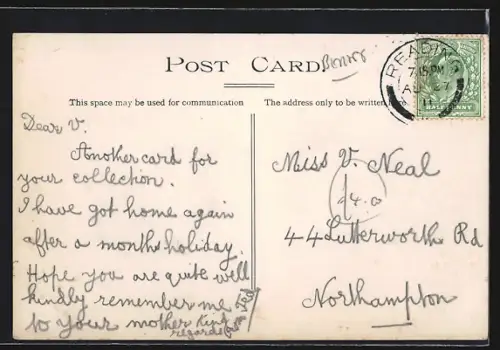 POST CARD.
This space may be used for communication
The address only to be written
READING
7.15 PM
AU 27
11
HALFPENNY
Dear V.
Another card for
your collection.
I have got home again
after a months holiday.
Hope you are quite well
kindly remember me
to your mother Kind
regards from
Miss V. Neal
44 Lutterworth Rd
Northampton